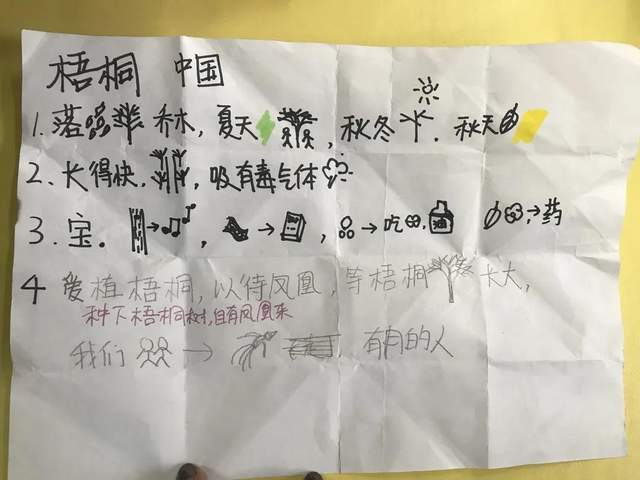 梧桐 中国
1. 落 乔木，夏天，秋冬，秋天
2、长得快，吸有毒气体
3、宝。，，→吃，油 →药
4 爱植梧桐，以待凤凰，等梧桐长大，
种下梧桐树，自有凤凰来
我们 → 有用的人